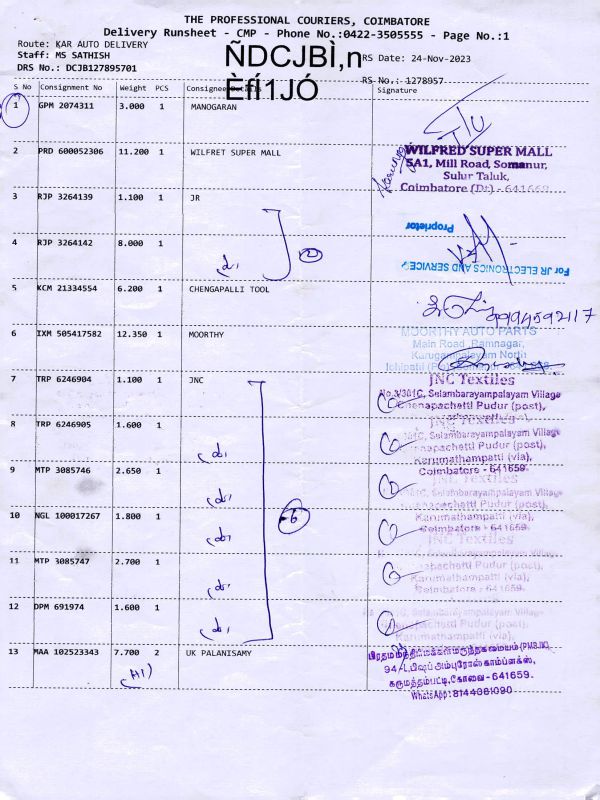 THE PROFESSIONAL COURIERS, COIMBATORE
Delivery Runsheet - CMP - Phone No.:0422-3505555 - Page No.:1
Route: KAR AUTO DELIVERY
Staff: MS SATHISH
DRS No.: DCJB127895701
ÑDCJBÌ,n
ÈfÍ1JÓ
RS Date: 24-Nov-2023
RS No.: 1278957
S No Consignment No Weight PCS Consignee Details Signature
1 GPM 2074311 3.000 1 MANOGARAN
2 PRD 600052306 11.200 1 WILFRET SUPER MALL
WILFRED SUPER MALL
5A1, Mill Road, Somanur,
Sulur Taluk,
Coimbatore (Dt) - 641668
3 RJP 3264139 1.100 1 JR
Proprietor
4 RJP 3264142 8.000 1
For JR ELECTRONICS AND SERVICE
5 KCM 21334554 6.200 1 CHENGAPALLI TOOL
9994592117
6 IXM 505417582 12.350 1 MOORTHY
MOORTHY AUTO PARTS
Main Road, Ramnagar,
Karugampalayam North
7 TRP 6246904 1.100 1 JNC
JNC Textiles
No.3/301C, Selambarayampalayam Village
Chenapachetti Pudur (post),
8 TRP 6246905 1.600 1
JNC Textiles
301C, Selambarayampalayam Village
Chenapachetti Pudur (post),
Karumathampatti (via),
Coimbatore - 641659.
9 MTP 3085746 2.650 1
JNC Textiles
Selambarayampalayam Village
Chenapachetti Pudur (post),
10 NGL 100017267 1.800 1
Karumathampatti (via),
Coimbatore - 641659.
JNC Textiles
11 MTP 3085747 2.700 1
Pudur (post),
Karumathampatti (via),
Coimbatore - 641659.
12 DPM 691974 1.600 1
Selambarayampalayam Village
Chenapachetti Pudur (post),
Karumathampatti (via),
13 MAA 102523343 7.700 2 UK PALANISAMY
(A1)
பிரதமமந்திரி மக்கள் மருந்தகமையம் (PMBJK),
94-L, பிஷப் அம்புரோஸ் காம்ப்ளக்ஸ்,
கருமத்தம்பட்டி, கோவை - 641659.
WhatsApp: 8144081090